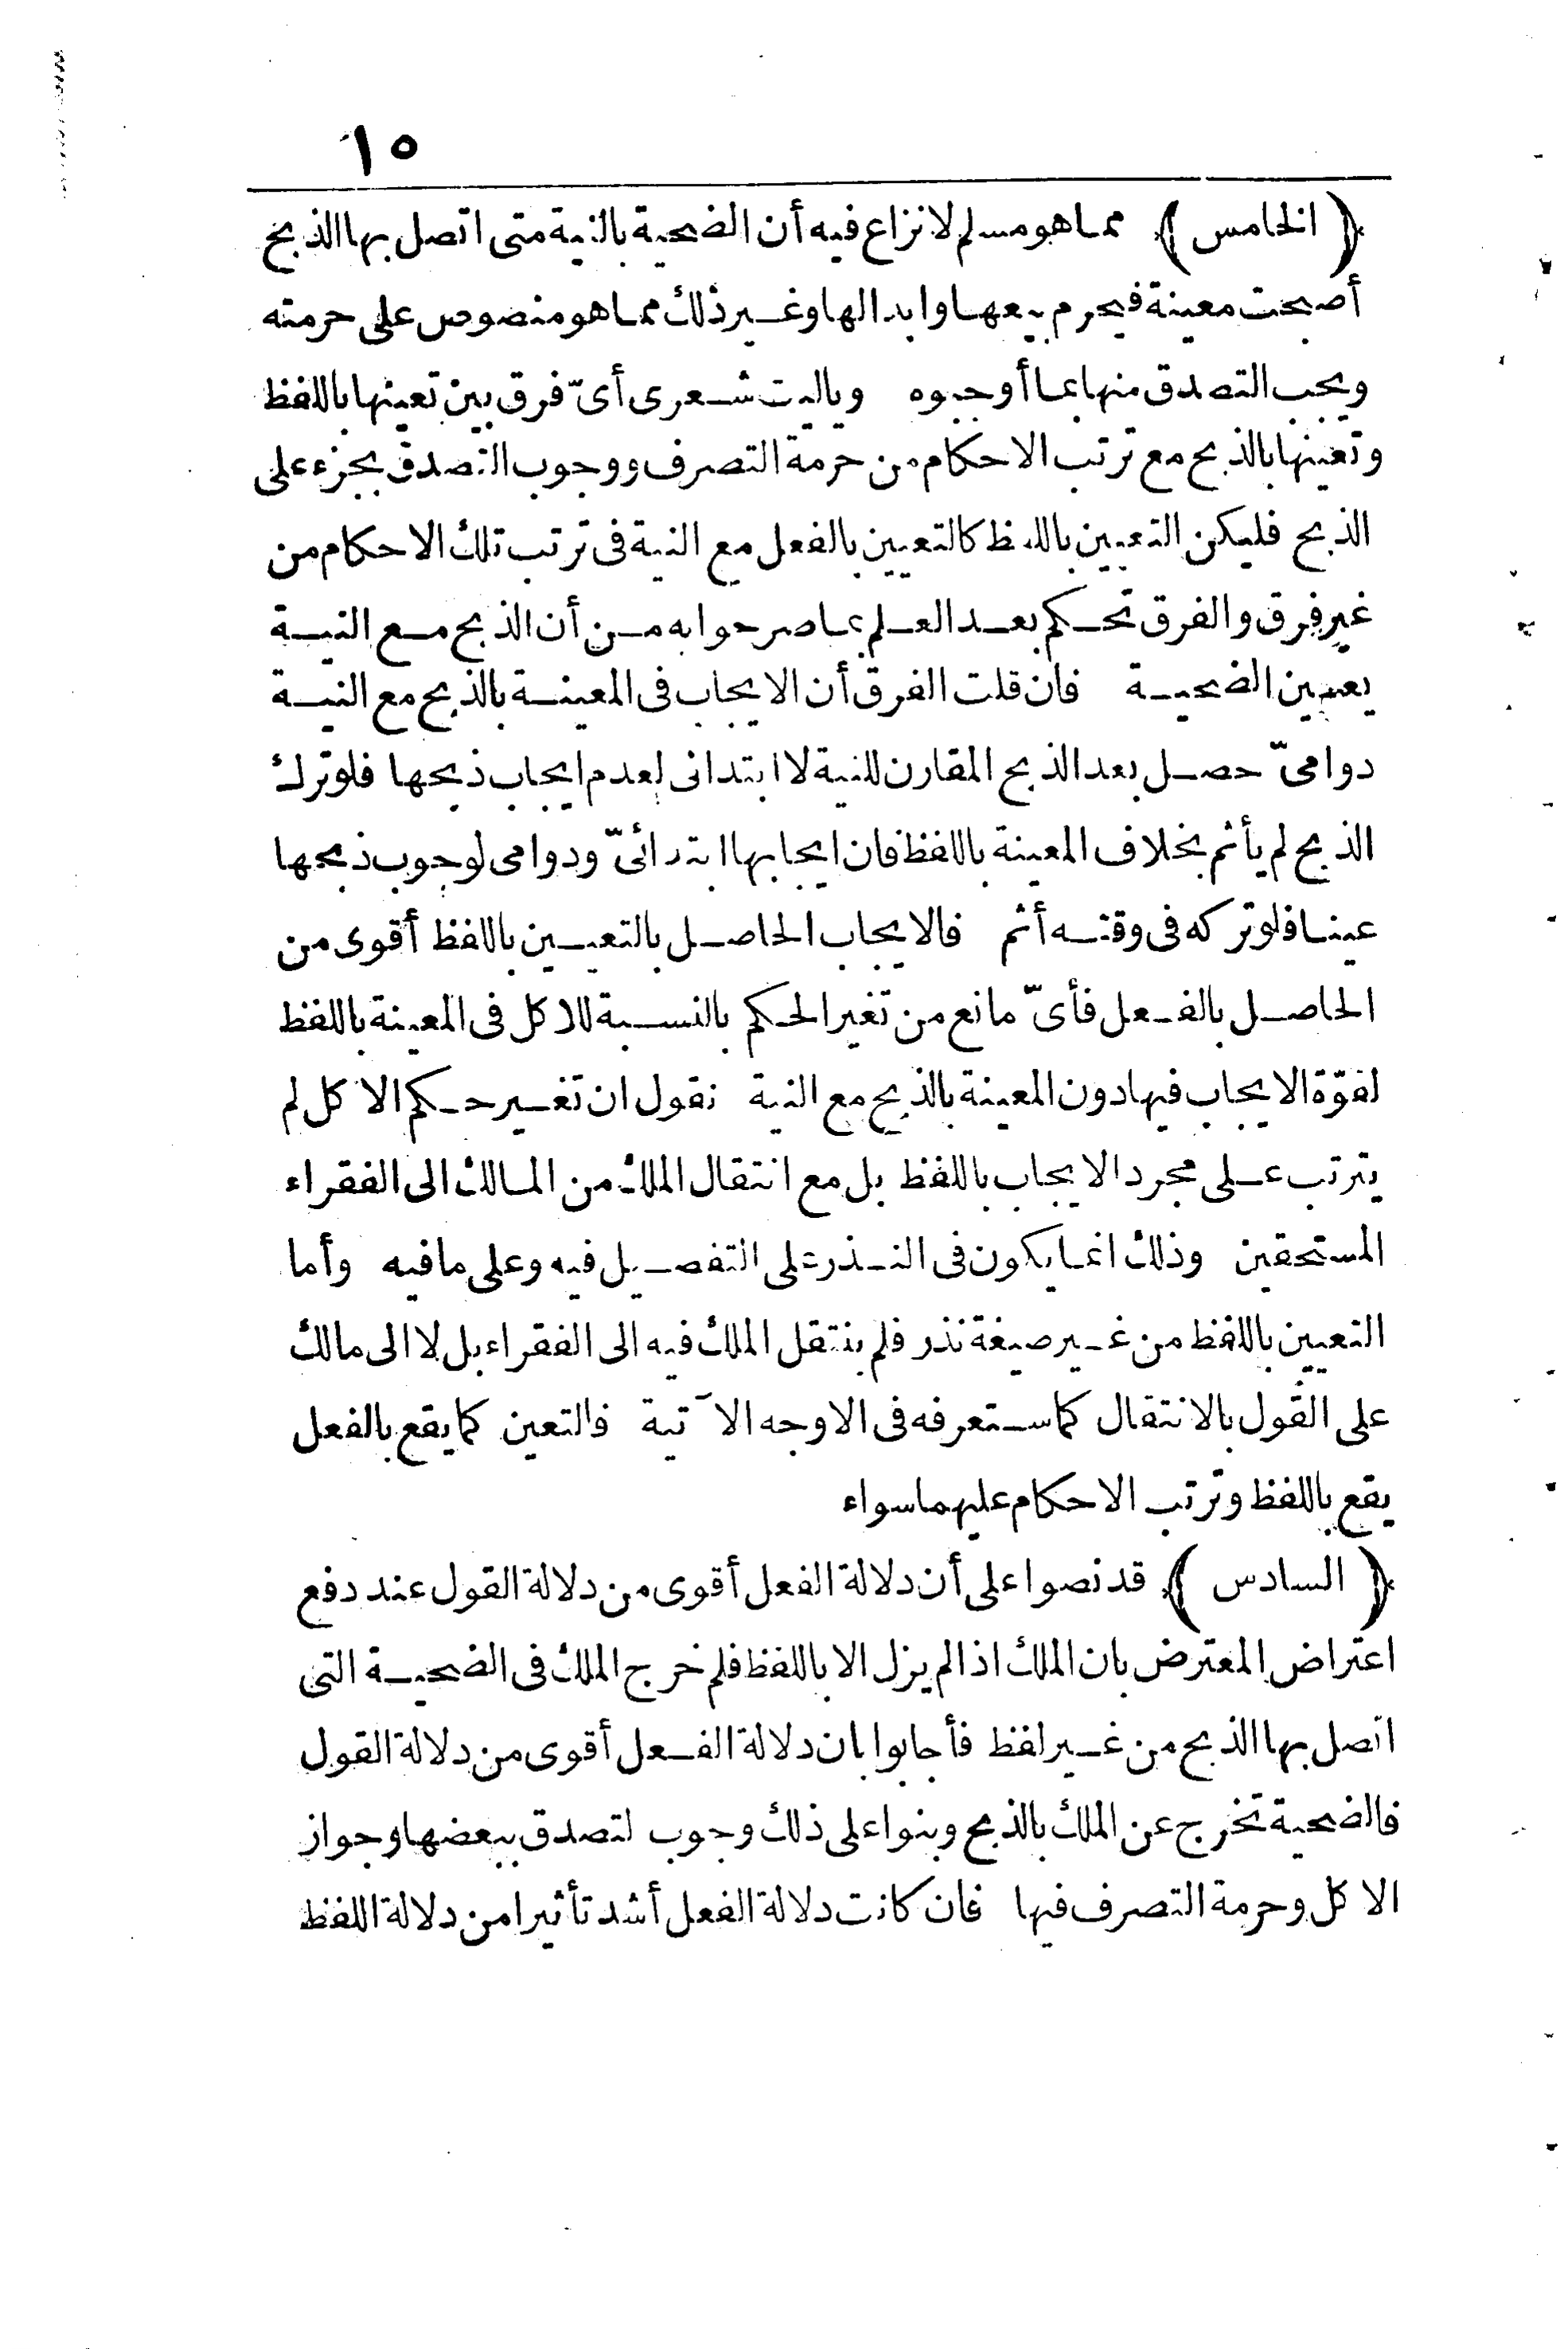 ١٥
﴿ الخامس ﴾ مما هو مسلم لا نزاع فيه أن الضحية بالنية متى اتصل بها الذبح
أصبحت معينة فيحرم بيعها وابدالها وغير ذلك مما هو منصوص على حرمته
ويجب التصدق منها بما أوجبوه وياليت شعرى أىّ فرق بين تعينها باللفظ
وتعينها بالذبح مع ترتب الاحكام من حرمة التصرف ووجوب التصدق بجزء على
الذبح فليكن التعيين باللفظ كالتعيين بالفعل مع النية فى ترتب تلك الاحكام من
غير فرق والفرق تحكم بعد العلم بما صرحوا به من أن الذبح مع النية
يعين الضحية فان قلت الفرق أن الايجاب فى المعينة بالذبح مع النية
دوامىّ حصل بعد الذبح المقارن للنية لا ابتدائى لعدم ايجاب ذبحها فلو ترك
الذبح لم يأثم بخلاف المعينة باللفظ فان ايجابها ابتدائىّ ودوامى لوجوب ذبحها
عينا فلو تركه فى وقته أثم فالايجاب الحاصل بالتعيين باللفظ أقوى من
الحاصل بالفعل فأىّ مانع من تغير الحكم بالنسبة للاكل فى المعينة باللفظ
لقوّة الايجاب فيها دون المعينة بالذبح مع النية نقول ان تغير حكم الاكل لم
يترتب على مجرد الايجاب باللفظ بل مع انتقال الملك من المالك الى الفقراء
المستحقين وذلك انما يكون فى النذر على التفصيل فيه وعلى ما فيه وأما
التعيين باللفظ من غير صيغة نذر فلم ينتقل الملك فيه الى الفقراء بل لا الى مالك
على القول بالانتقال كما ستعرفه فى الاوجه الآتية فالتعين كما يقع بالفعل
يقع باللفظ وترتب الاحكام عليهما سواء
﴿ السادس ﴾ قد نصوا على أن دلالة الفعل أقوى من دلالة القول عند دفع
اعتراض المعترض بان الملك اذا لم يزل الا باللفظ فلم خرج الملك فى الضحية التى
اتصل بها الذبح من غير لفظ فأجابوا بان دلالة الفعل أقوى من دلالة القول
فالضحية تخرج عن الملك بالذبح وبنوا على ذلك وجوب لتصدق ببعضها وجواز
الاكل وحرمة التصرف فيها فان كانت دلالة الفعل أشد تأثيرا من دلالة اللفظ